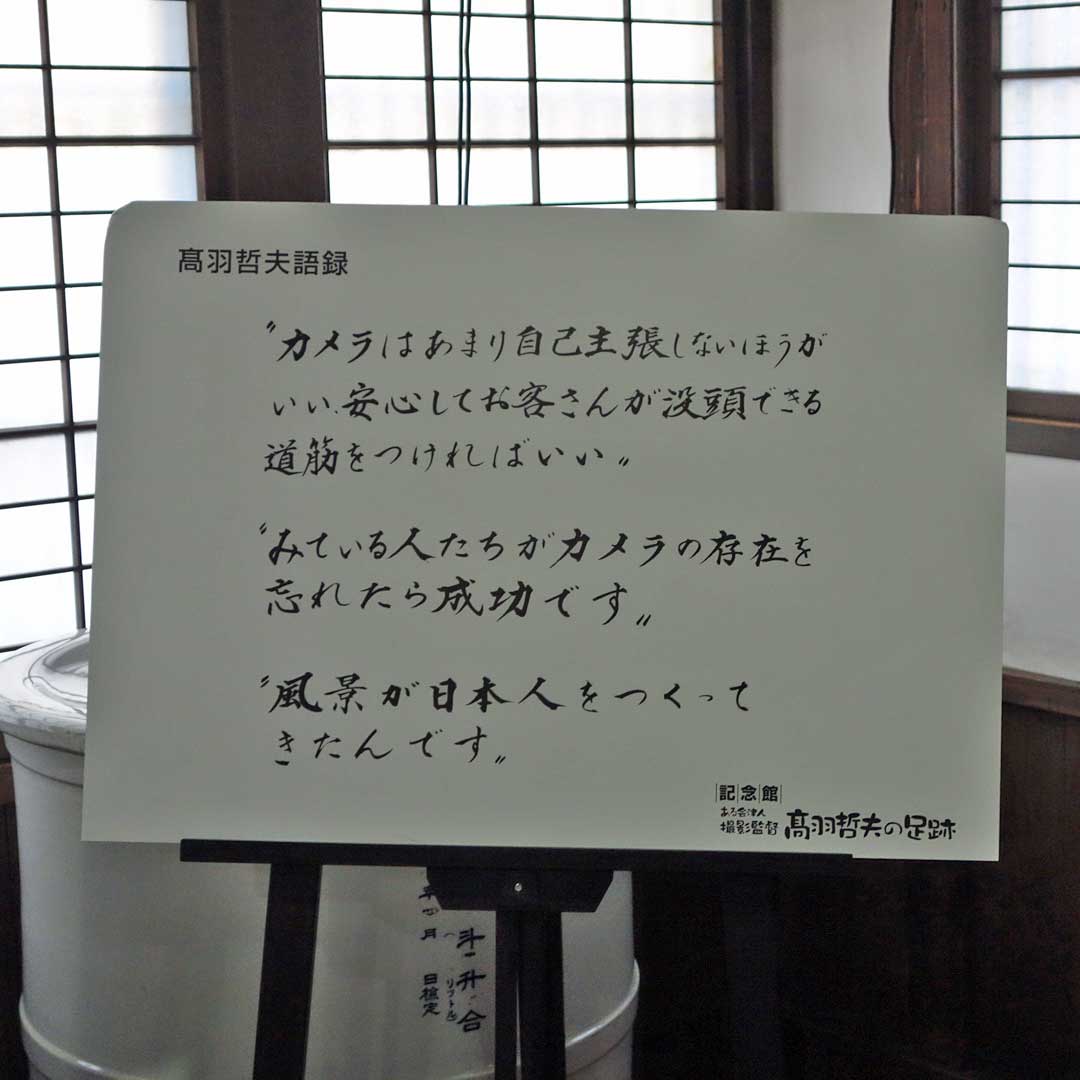 髙羽哲夫語録
〝カメラはあまり自己主張しないほうが
いい.安心してお客さんが没頭できる
道筋をつければいい〟
〝みている人たちがカメラの存在を
忘れたら成功です〟
〝風景が日本人をつくって
きたんです〟
記念館
ある会津人
撮影監督 髙羽哲夫の足跡
斗
升
合
リットル
月
日検定